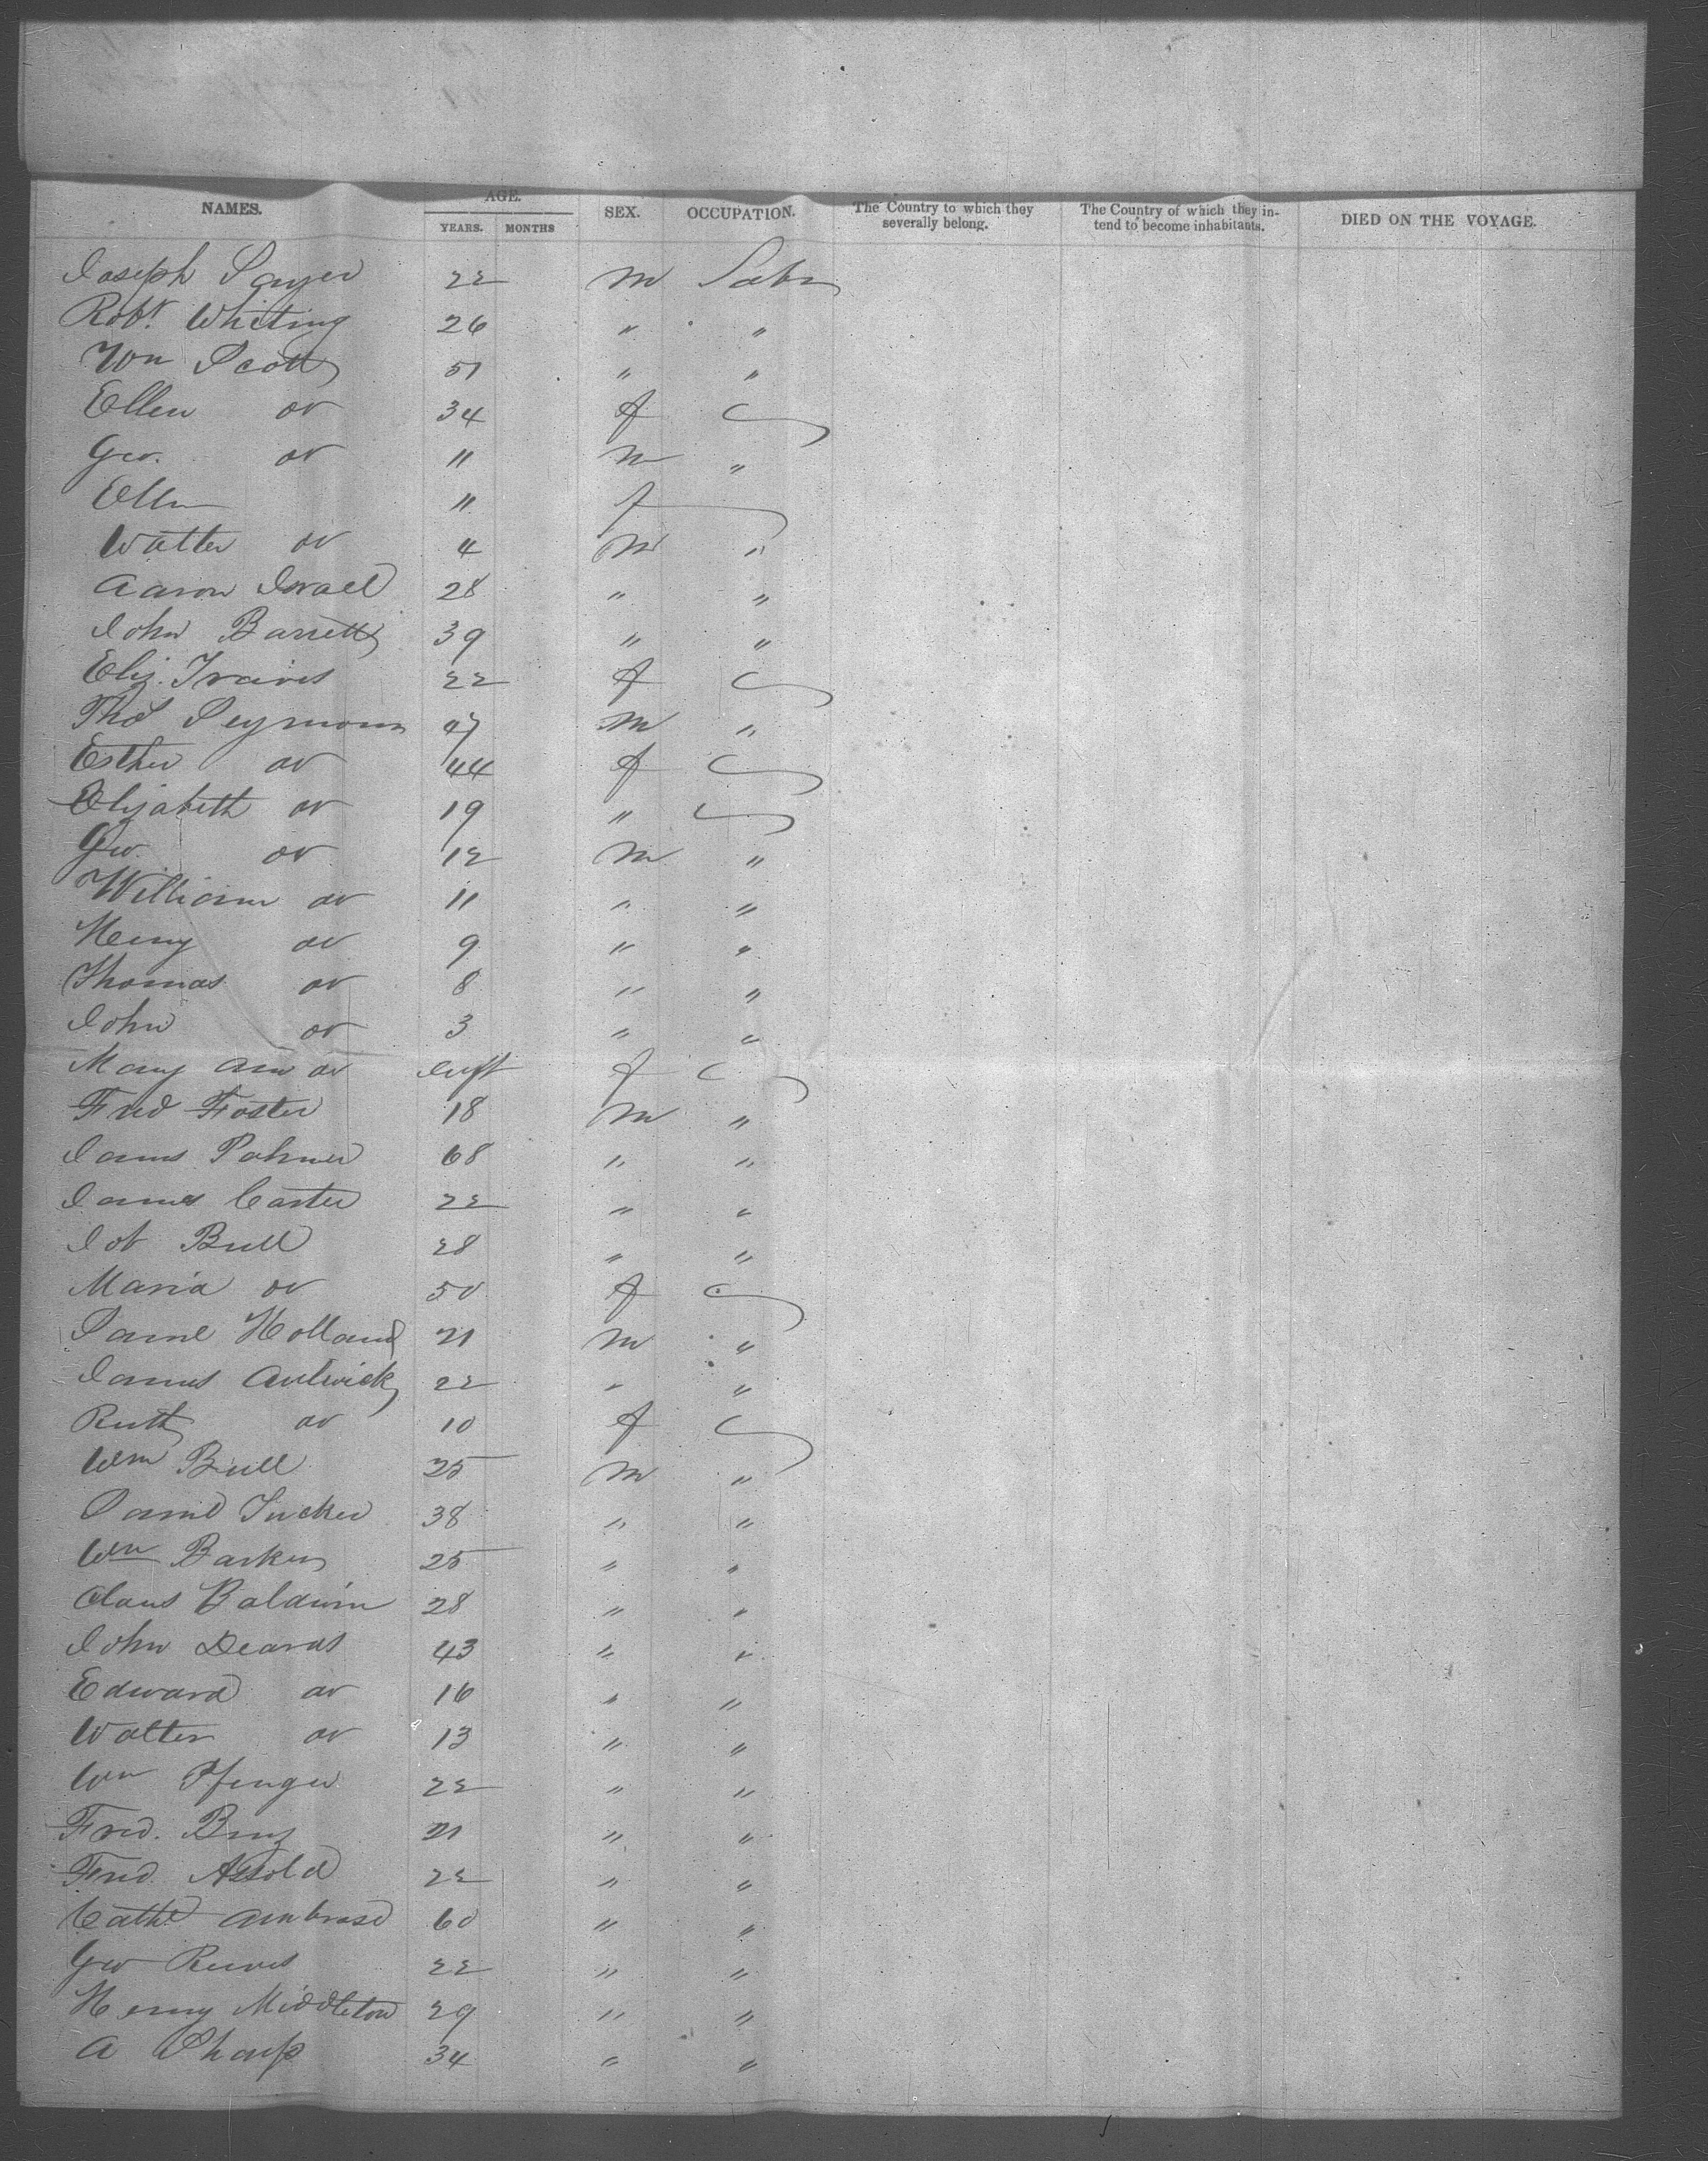 NAMES. AGE. YEARS. MONTHS SEX. OCCUPATION. The Country to which they severally belong. The Country of which they intend to become inhabitants. DIED ON THE VOYAGE.
Joseph Sawyer 22 m Labr
Robt. Whiting 26 " "
Wm Scott 51 " "
Ellen do 34 f
Geo. do 11 m "
Ellen 11 f
Walter do 4 m "
Aaron Israel 28 " "
John Barrett 39 " "
Eliz. Travis 22 f
Thos Seymour 47 m "
Esther do 44 f
Elizabeth do 19 "
Geo. do 12 m "
William do 11 " "
Henry do 9 " "
Thomas do 8 " "
John do 3 " "
Mary Ann do Inft f
Fred Foster 18 m "
James Palmer 68 " "
James Carter 22 " "
Job Bull 28 " "
Maria do 50 f
Saml Holland 21 m "
James 22 " "
Ruth do 10 f
Wm Bull 25 m "
Saml Tucker 38 " "
Wm Barker 25 " "
Baldwin 28 " "
John Deards 43 " "
Edward do 16 " "
Walter do 13 " "
Wm Pfinger 22 " "
Fred. 21 " "
Fred. 22 " "
Cathe Ambrose 60 " "
Geo Reeves 22 " "
Henry Middleton 29 " "
A Sharp 34 " "